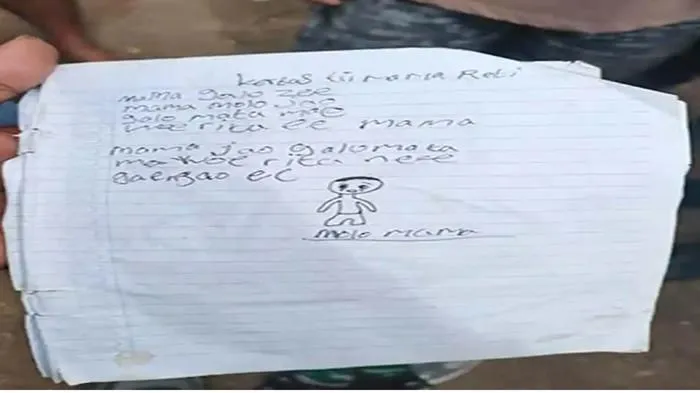 Kertas Tii Mama Reti
mama galo zee
mama molo Jao
galo mata mae
woe rita ee mama
mama jao galo mata
mae woe rita nee
gae ngao ee
molo mama